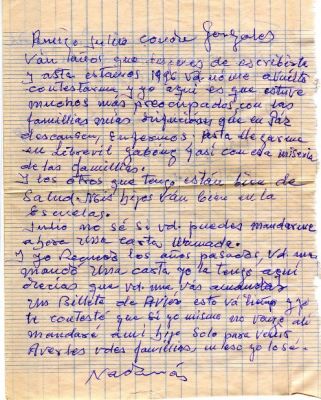 Amigo Julio conde Gonzales
Van años que tu eres de escribirte
Y asta estamos 1996 vd no me a vuelto
contestarme, y yo aqui es que estuve
muchos mas preocupados con las
famillias mias que en Paz
descansen, Enfermos hasta llegarme
en Librevil Gabong y asi con esa miseria
de las famillias.
Y los otros que tengo están bien de
Salud. Mis hijos van bien en la
Escuelas.
Julio no sé si vd. puedes mandarme
ahora una carta llamada.
Y yo los años pasados, vd. me
mandó una carta yo la tengo aquí
decias que vd. me vás amandar
un Billete de Avion esto vá bien y yo
ti contesté que si yo mismo no vengo ahí
mandaré a mi hijo solo para venir
A verles vdes famillias, in eso yo lo sé.
Nadamás